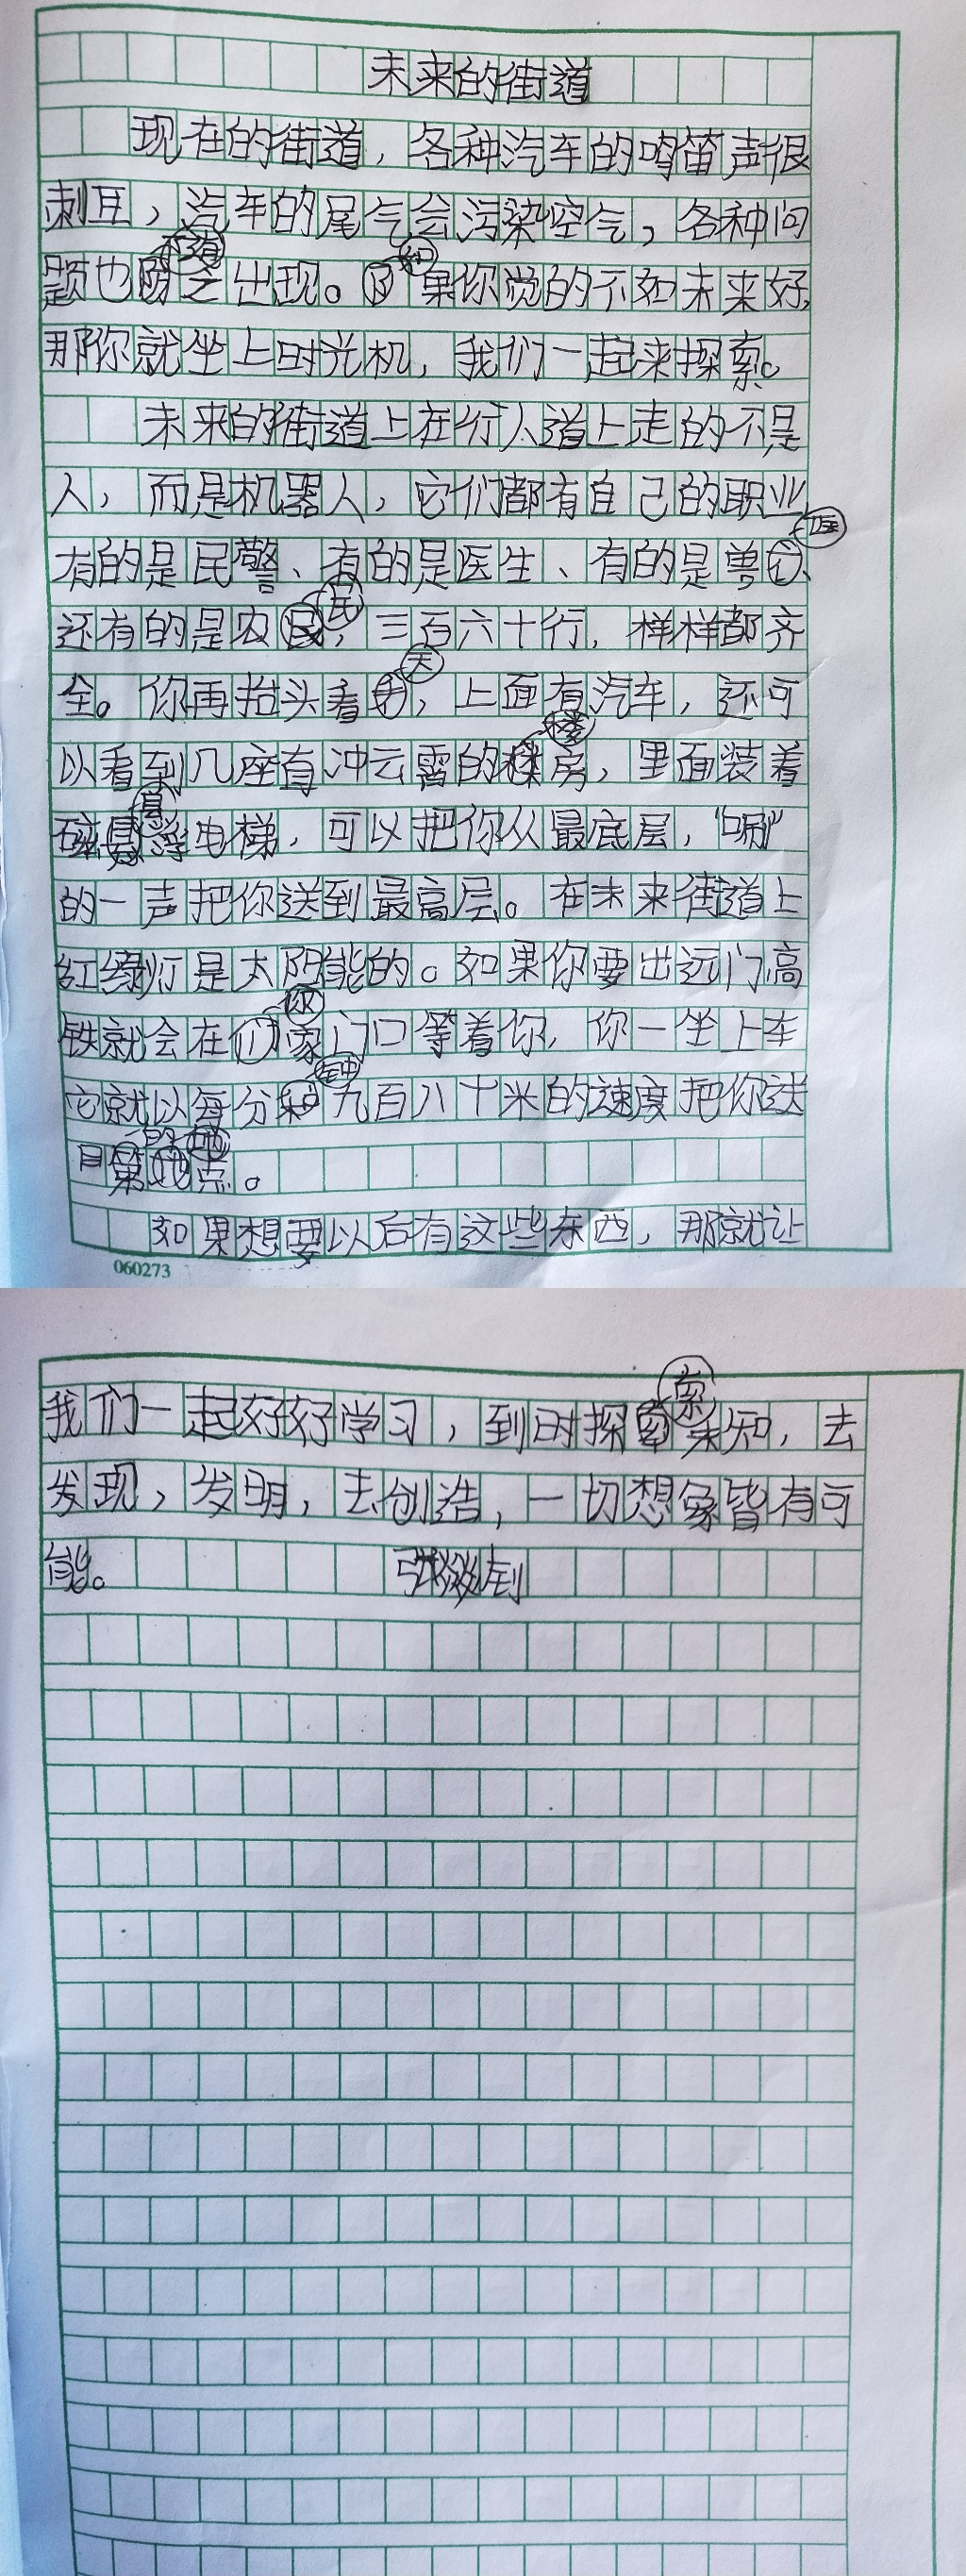 未来的街道
现在的街道，各种汽车的鸣笛声很
刺耳，汽车的尾气会污染空气，各种问
题也随之出现。如果你觉的不如未来好，
那你就坐上时光机，我们一起来探索。
未来的街道上在行人道上走的不是
人，而是机器人，它们都有自己的职业
有的是民警、有的是医生、有的是兽医、
还有的是农民，三百六十行，样样都齐
全。你再抬头看天，上面有汽车，还可
以看到几座直冲云霄的楼房，里面装着
磁悬浮电梯，可以把你从最底层，“唰”
的一声把你送到最高层。在未来街道上
红绿灯是太阳能的。如果你要出远门高
铁就会在你家门口等着你，你一坐上车
它就以每分钟九百八十米的速度把你送
目的地。
如果想要以后有这些东西，那就让
060273
我们一起好好学习，到时探索未知，去
发现，发明，去创造，一切想象皆有可
能。